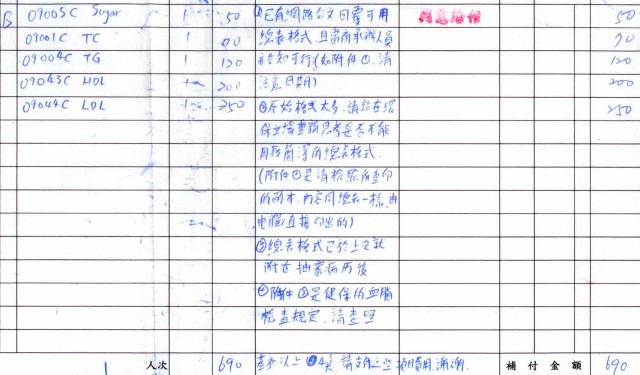 B 09005C Sugar 1 50 ①已有網路公文回覆可用 同意給付 50
09001C TC 1 70 總表格式,且當前承辦人員 70
09004C TG 1 120 告知可行(如附件①,請 120
09043C HDL 200 注意日期) 200
09044C LDL 1 250 ②原始格式太多,請站在環 250
保立場重新思考是否不能
用較簡潔的總表格式.
(附件②是清檢驗所查印
的副本,內容同總表一樣,由
電腦直接印出的)
③總表格式已於上文就
附在抽審病歷後
④附件③是健保的血脂
檢查規定,請查照
人次 690 基於以上4点,請支付之 費用,謝謝. 補付金額 690